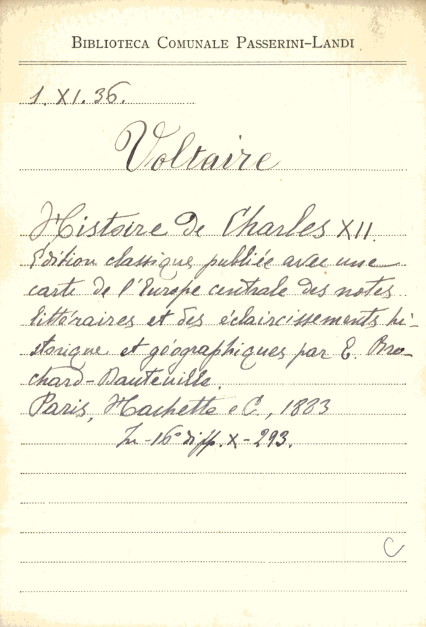 BIBLIOTECA COMUNALE PASSERINI-LANDI
1. XI. 36.
Voltaire
Histoire de Charles XII.
Édition classique publiée avec une
carte de l'Europe centrale des notes
littéraires et des éclaircissements hi-
storique et géographiques par E. Bro-
chard-Dauteuille.
Paris, Hachette e C., 1883
In-16° di pp. X-293.
C